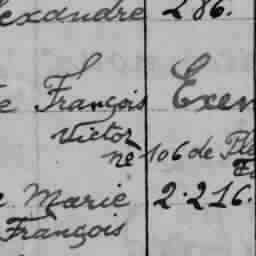 exandre 286.
e François Exem
Victor
né 106 de Ple
Marie 2.216.
François